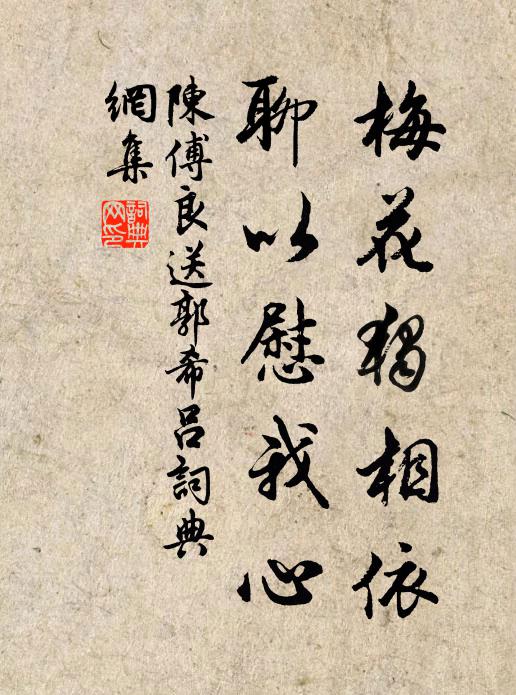 梅花獨相依
聊以慰我心
陳傅良送郭希呂詞典
網集
詞典網印